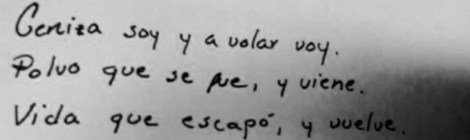 Ceniza soy y a volar voy.
Polvo que se fue, y viene.
Vida que escapó, y vuelve.